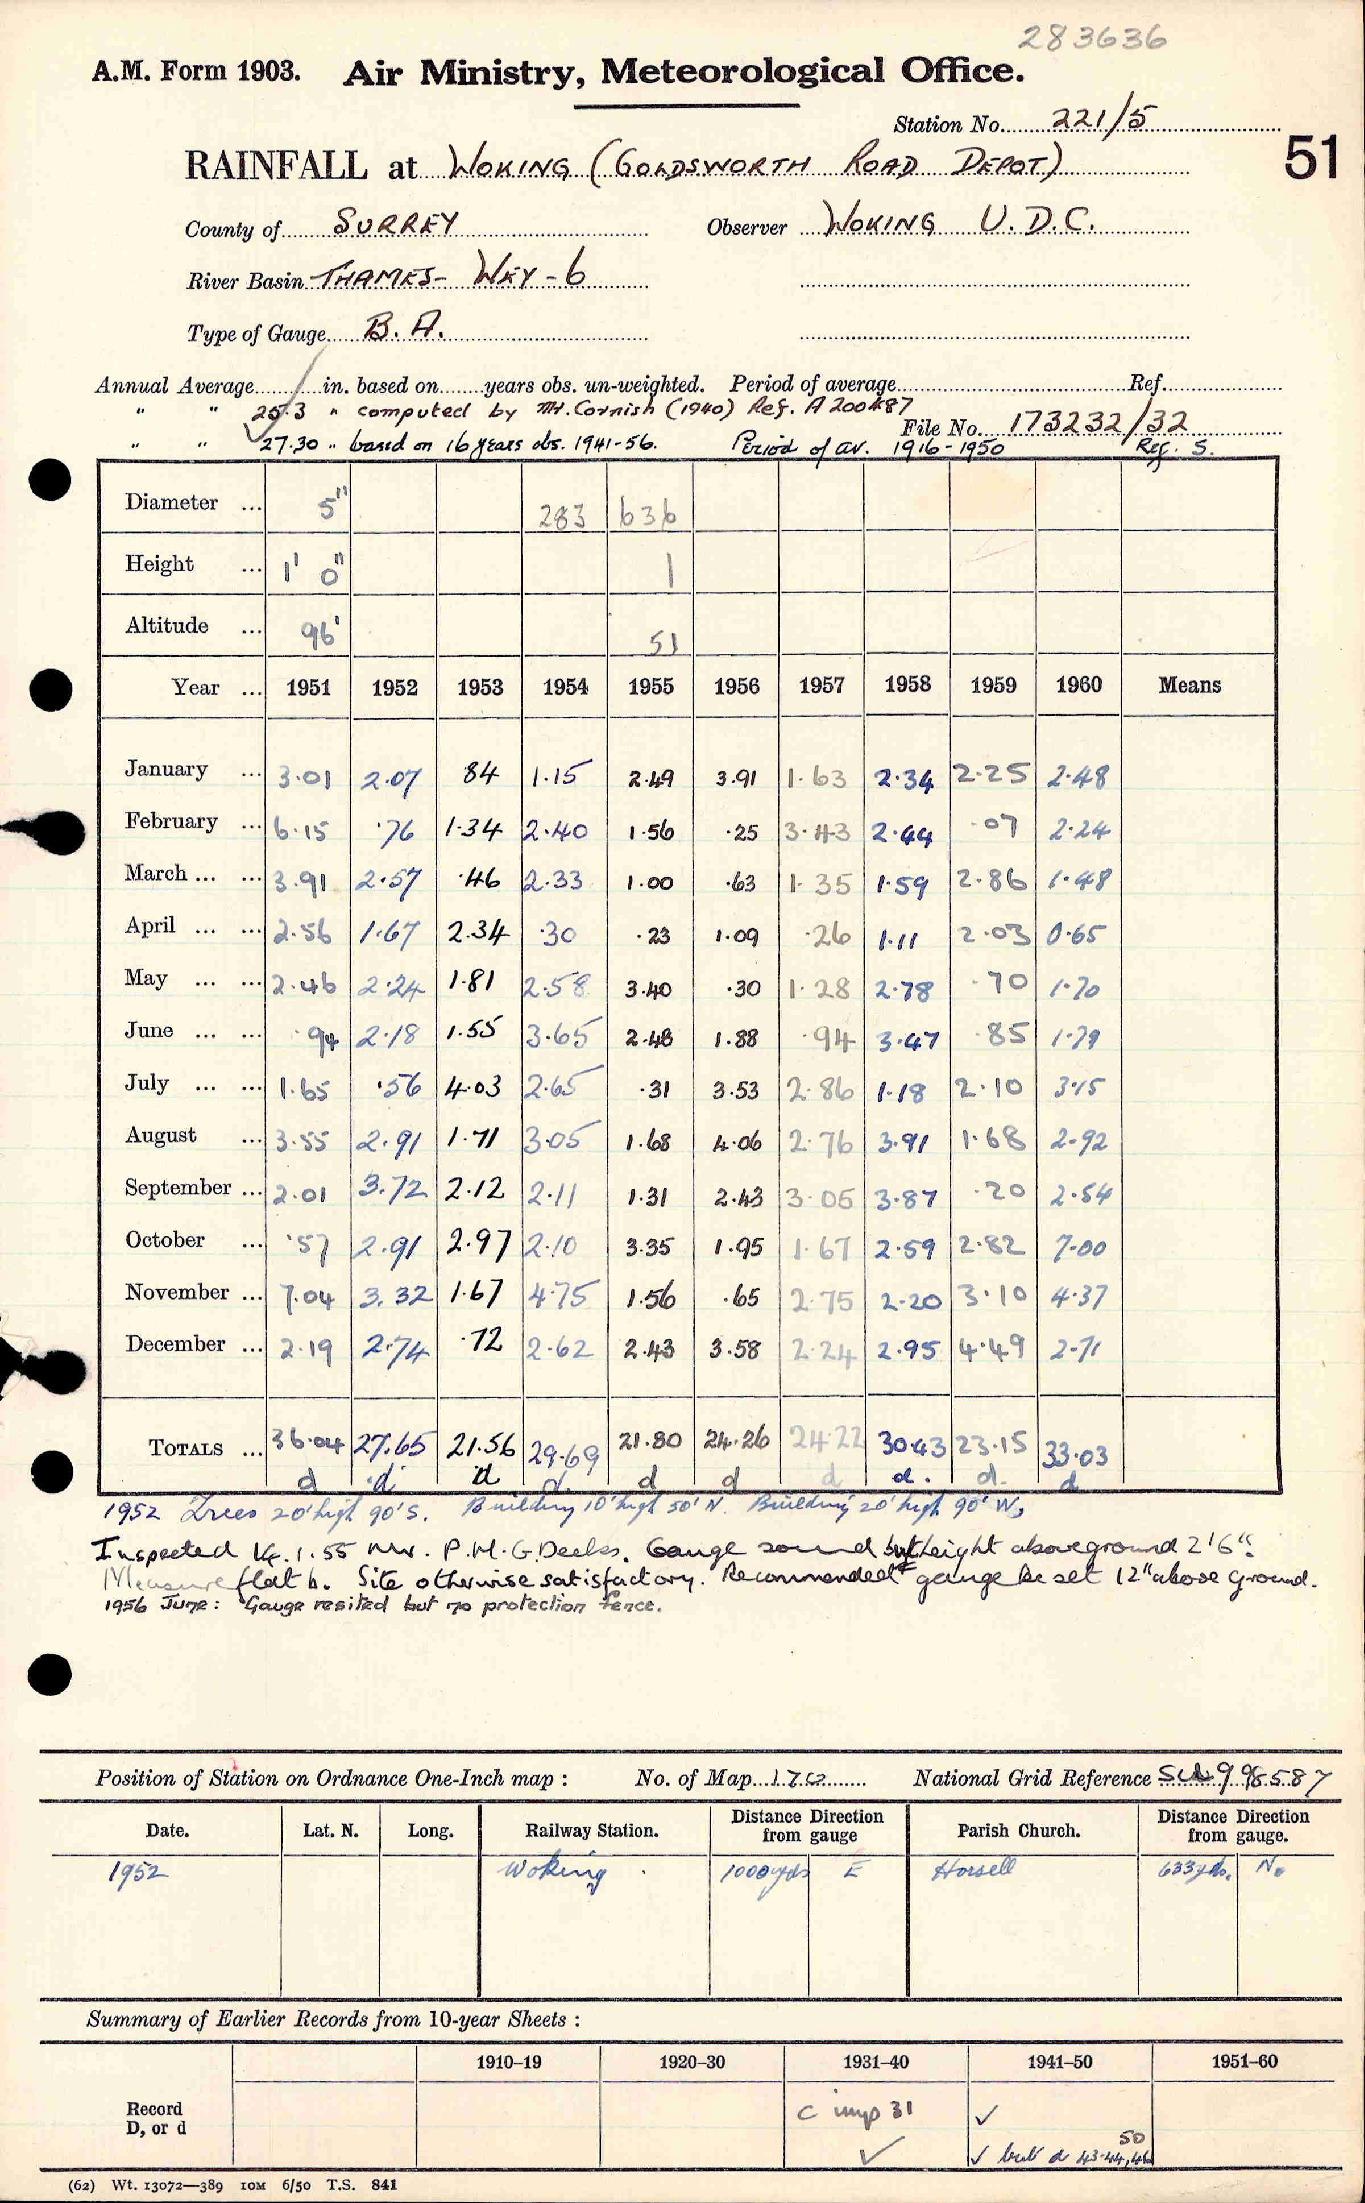 283636
A.M. Form 1903. Air Ministry, Meteorological Office.
Station No. 221/5
51
RAINFALL at WOKING (GOLDSWORTH ROAD DEPOT)
County of SURREY Observer WOKING U.D.C.
River Basin THAMES - WEY - 6
Type of Gauge B.A.
Annual Average in. based on years obs. un-weighted. Period of average Ref.
" " 25.3 " computed by Mr. Cornish (1940) Ref. A200487
File No. 173232/32
" " 27.30 " based on 16 years obs. 1941-56. Period of av. 1916-1950 Ref. S.
Diameter ... 5" 283 636
Height ... 1' 0" 1
Altitude ... 96' 51
Year ... 1951 1952 1953 1954 1955 1956 1957 1958 1959 1960 Means
January ... 3.01 2.07 84 1.15 2.49 3.91 1.63 2.34 2.25 2.48
February ... 6.15 .76 1.34 2.40 1.56 .25 3.43 2.44 .07 2.24
March ... ... 3.91 2.57 .46 2.33 1.00 .63 1.35 1.59 2.86 1.48
April ... ... 2.56 1.67 2.34 .30 .23 1.09 .26 1.11 2.03 0.65
May ... ... 2.46 2.24 1.81 2.58 3.40 .30 1.28 2.78 .70 1.70
June ... ... .94 2.18 1.55 3.65 2.48 1.88 .94 3.47 .85 1.79
July ... ... 1.65 .56 4.03 2.65 .31 3.53 2.86 1.18 2.10 3.15
August ... 3.55 2.91 1.71 3.05 1.68 4.06 2.76 3.91 1.68 2.92
September ... 2.01 3.72 2.12 2.11 1.31 2.43 3.05 3.87 .20 2.54
October ... .57 2.91 2.97 2.10 3.35 1.95 1.67 2.59 2.82 7.00
November ... 7.04 3.32 1.67 4.75 1.56 .65 2.75 2.20 3.10 4.37
December ... 2.19 2.74 .72 2.62 2.43 3.58 2.24 2.95 4.49 2.71
TOTALS ... 36.04 27.65 21.56 29.69 21.80 24.26 24.22 30.43 23.15 33.03
d d d d d d d d. d. d
1952 Trees 20' high 90' S. Building 10' high 50' N. Building 20' high 90' W.
Inspected 14.1.55 Mr. P.M.G. Deeks. Gauge sound but height above ground 2'6".
Measure flat b. Site otherwise satisfactory. Recommended gauge be set 12" above ground.
1956 June: Gauge resited but no protection fence.
Position of Station on Ordnance One-Inch map : No. of Map 170 National Grid Reference 998587
Date. Lat. N. Long. Railway Station. Distance from gauge Direction Parish Church. Distance from gauge. Direction
1952 Woking 1000 yds E Horsell 633 yds. N.
Summary of Earlier Records from 10-year Sheets :
1910–19 1920–30 1931–40 1941–50 1951–60
Record
D, or d
c imp 31 ✓
✓ ✓ but d 43-44,46 50
(62) Wt. 13072—389 10M 6/50 T.S. 841